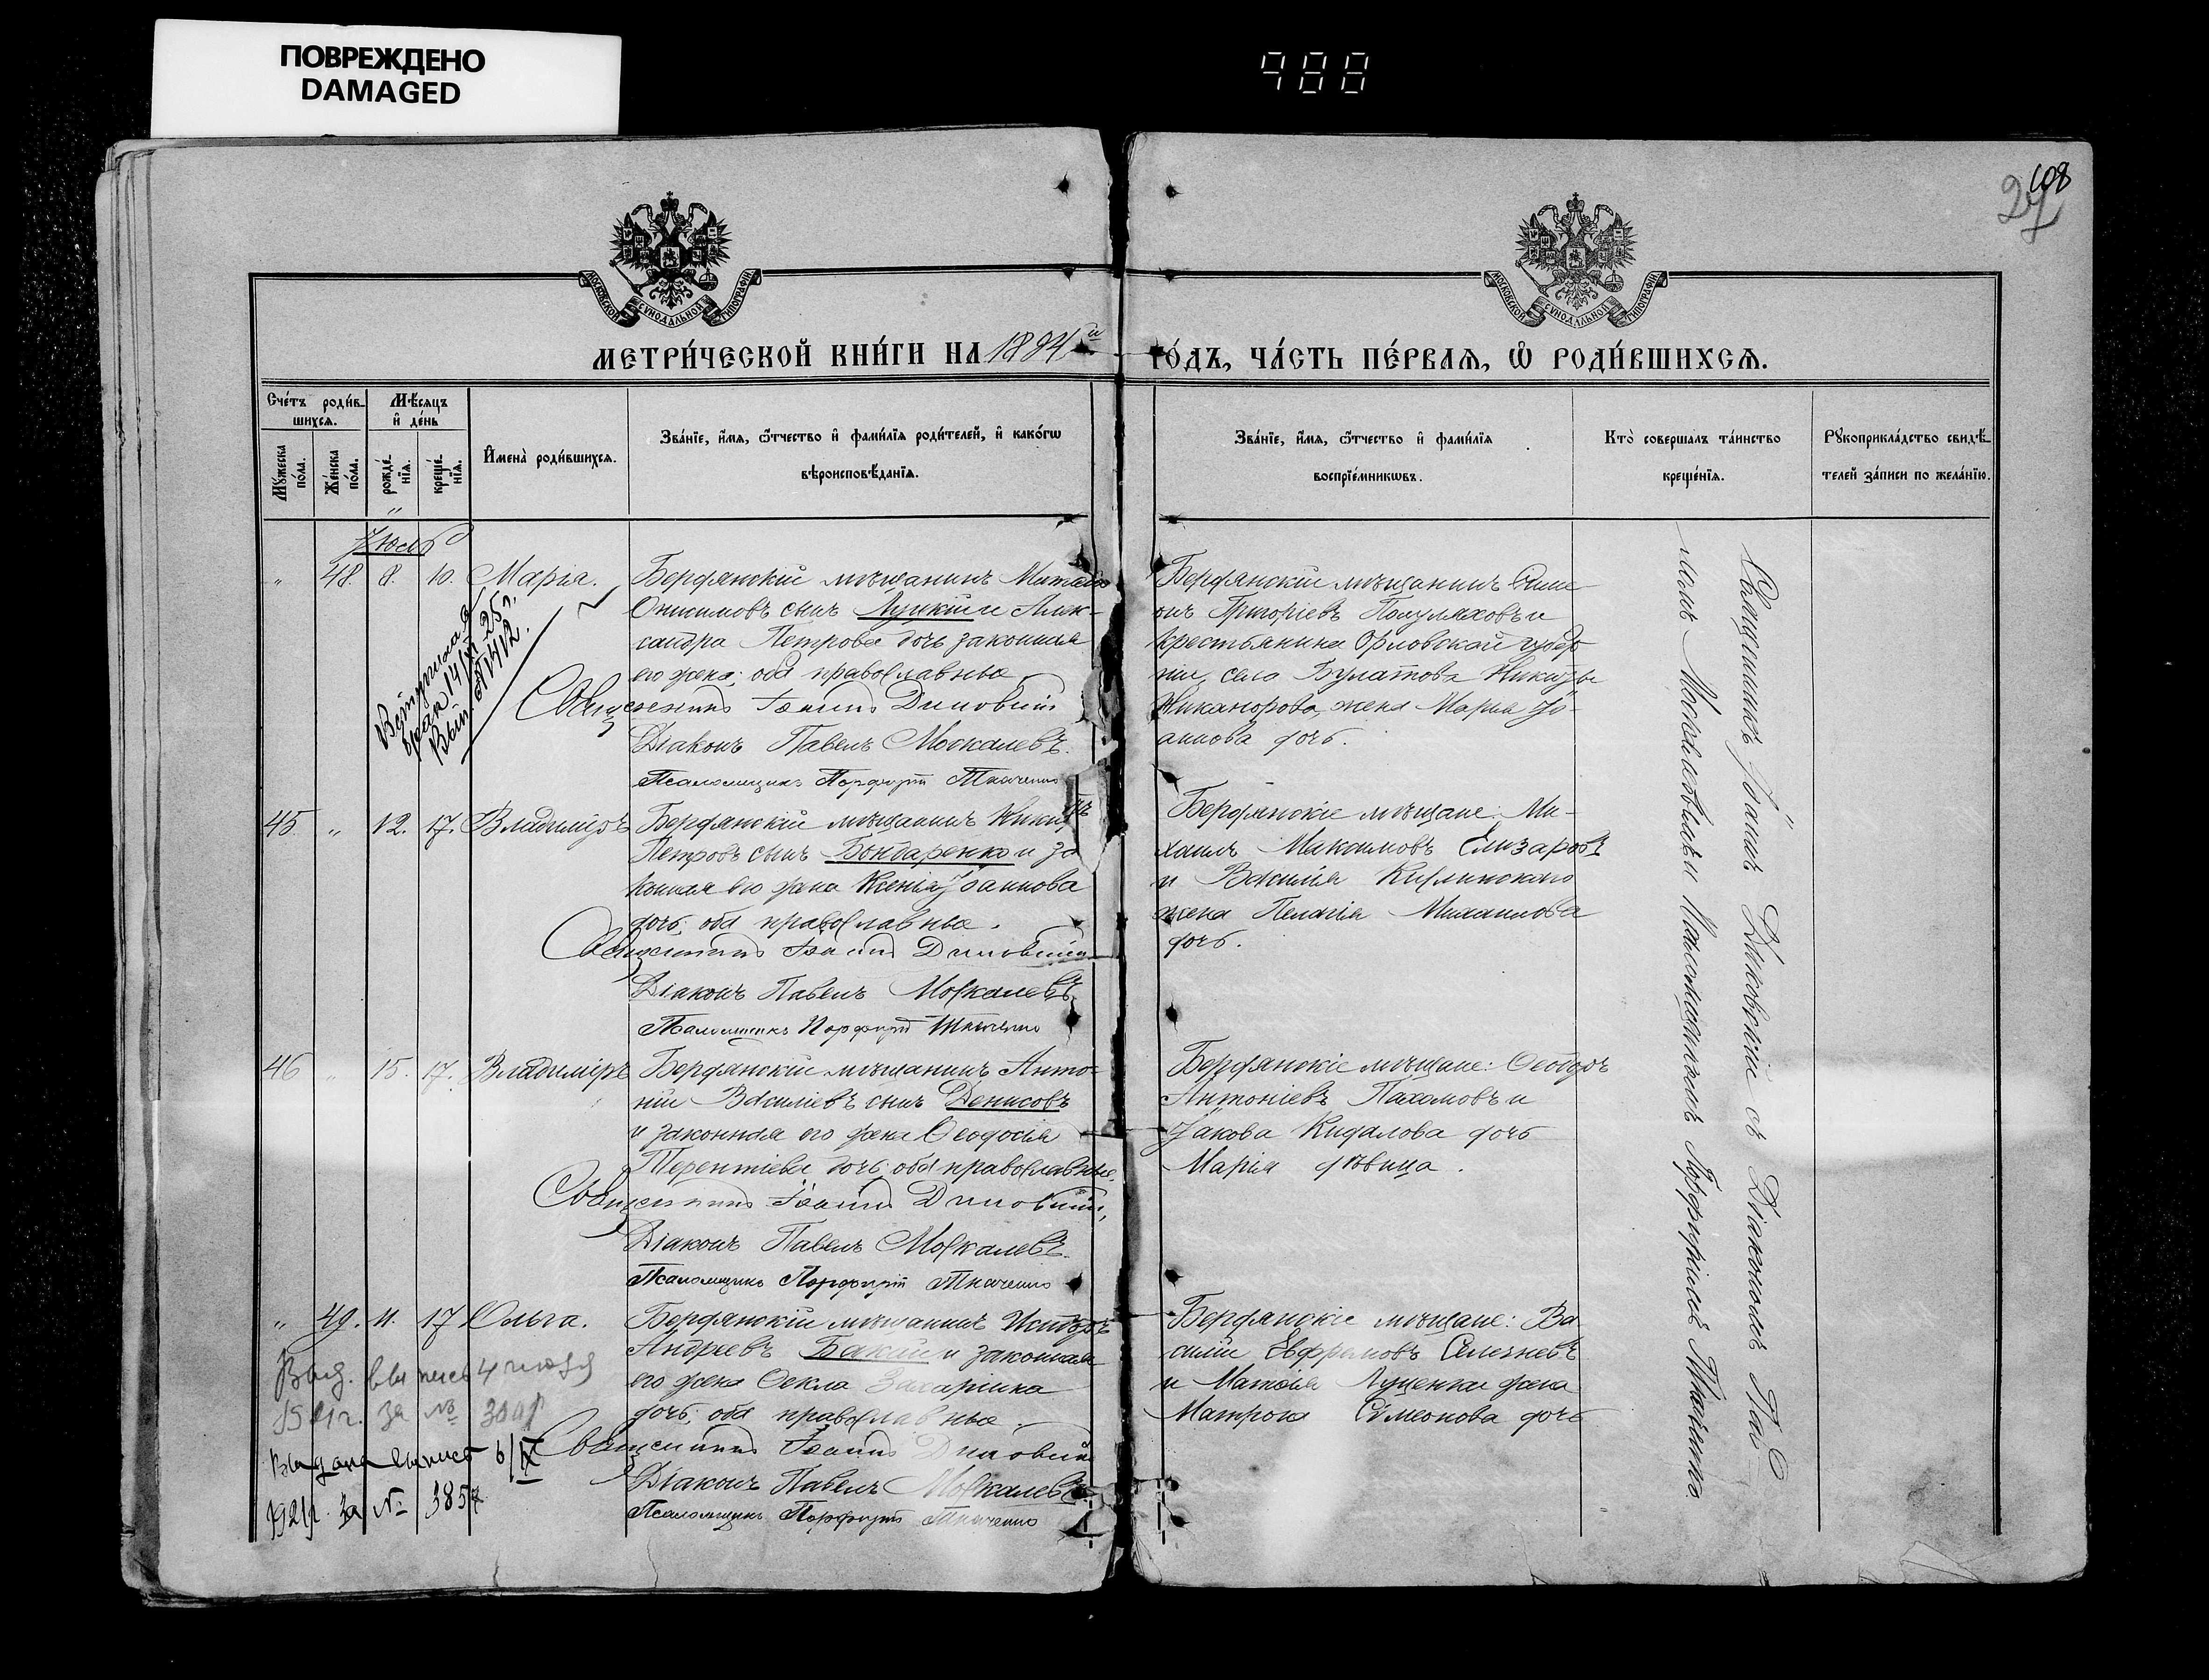 ПОВРЕЖДЕНО
DAMAGED
988
108
27
МОСКОВСКОЙ СѴНОДАЛЬНОЙ ТИПОГРАФИ
МОСКОВСКОЙ СѴНОДАЛЬНОЙ ТИПОГРАФИ
МЕТРИ́ЧЕСКОЙ КНИ́ГИ НА 1894й ГО́ДЪ, ЧА́СТЬ ПЕ́РВАЯ, Ѡ РОДИ́ВШИХСЯ.
Сче́тъ роди́в-
шихся.
Мꙋжеска по́ла.
Же́нска по́ла.
Мѣ́сяцъ и де́нь
рожде́нїя.
креще́нїя.
Имена̀ роди́вшихся.
Зва́нїе, и́мя, ѻ́тчество и фами́лїя роди́телей, и како́гѡ
вѣроисповѣ́данїя.
Зва́нїе, и́мя, ѻ́тчество и фами́лїя
воспрїе́мникѡвъ.
Кто̀ совершалъ та́инство
креще́нїя.
Рꙋкоприкла́дство свидѣ́-
телей за́писи по жела́нїю.
" 48. 8. 10. Марія.
Бердянскій мѣщанинъ
Онисимовъ сынъ Луцкій и Алек-
сандра Петрова дочь законная
его жена; оба православные
Священникъ Іоаннъ Диковскій
Діаконъ Павелъ Москалевъ.
Псаломщикъ Порфирій Ткаченко
Бердянскій мѣщанинъ
Григоріевъ и
крестьянина Орловской губер
ніи, села Булатова Никиты
Никанорова, жена Марія Іо-
аннова дочь.
14/XI 25 г.
№ 1412.
45. " 12. 17. Владиміръ
Бердянскій мѣщанинъ
Петровъ сынъ Бондаренко и за
конная его жена Ксенія Іоаннова
дочь; оба православные.
Священникъ Іоаннъ Диковскій
Діаконъ Павелъ Москалевъ
Псаломщикъ Порфирій Ткаченко
Бердянскіе мѣщане: Ми-
хаилъ Максимовъ Елизаровъ
и Василія
жена Пелагія Михаилова
дочь.
46 " 15. 17. Владиміръ
Бердянскій мѣщанинъ Анто-
ній Василіевъ сынъ Денисовъ
и законная его жена Ѳеодосія
Терентіева дочь; оба православные.
Священникъ Іоаннъ Диковскій,
Діаконъ Павелъ Москалевъ.
Псаломщикъ Порфирій Ткаченко
Бердянскіе мѣщане: Ѳеодоръ
Антоніевъ Пахомовъ и
Іакова Кидалова дочь
Марія дѣвица.
" 49. 11. 17 Ольга.
Бердянскій мѣщанинъ Исидоръ
Андреевъ Бакій и законная
его жена Ѳекла Захаріина
дочь; оба православные.
Священникъ Іоаннъ Диковскій
Діаконъ Павелъ Москалевъ
Псаломщикъ Порфирій Ткаченко
Бердянскіе мѣщане: Ва
силій Евфремовъ Селезневъ
и Матѳія Луценки жена
Матрона Симеонова дочь
Выд. выпись 4
за №
Выдана выпись 6/IX
за № 3857
Священникъ Іоаннъ Диковскій съ Діакономъ Па
Москалевымъ и Псаломщикомъ Порфиріемъ Ткаченко.